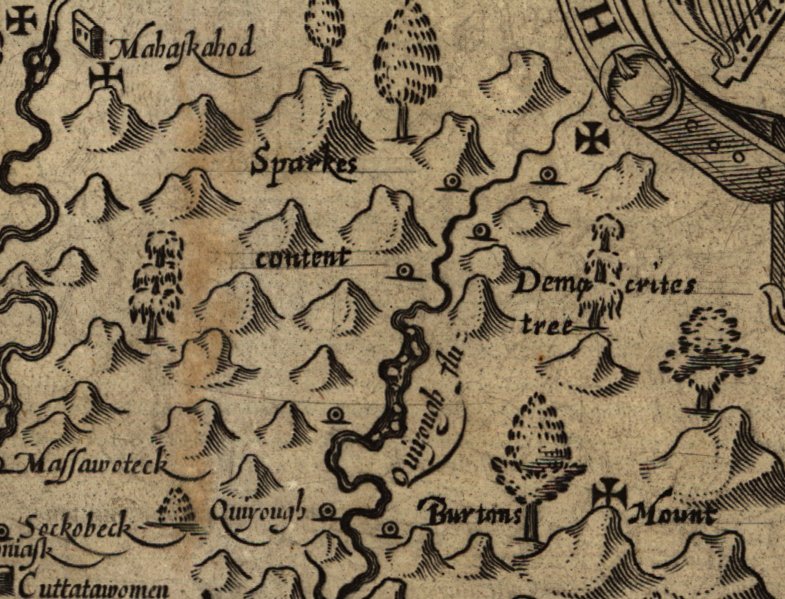 H
Mahaſkahod
Sparkes
content
Democrites
tree
Quiyough flu:
Maſſawoteck
Quiyough
Burtons Mount
Sockobeck
Cuttatawomen